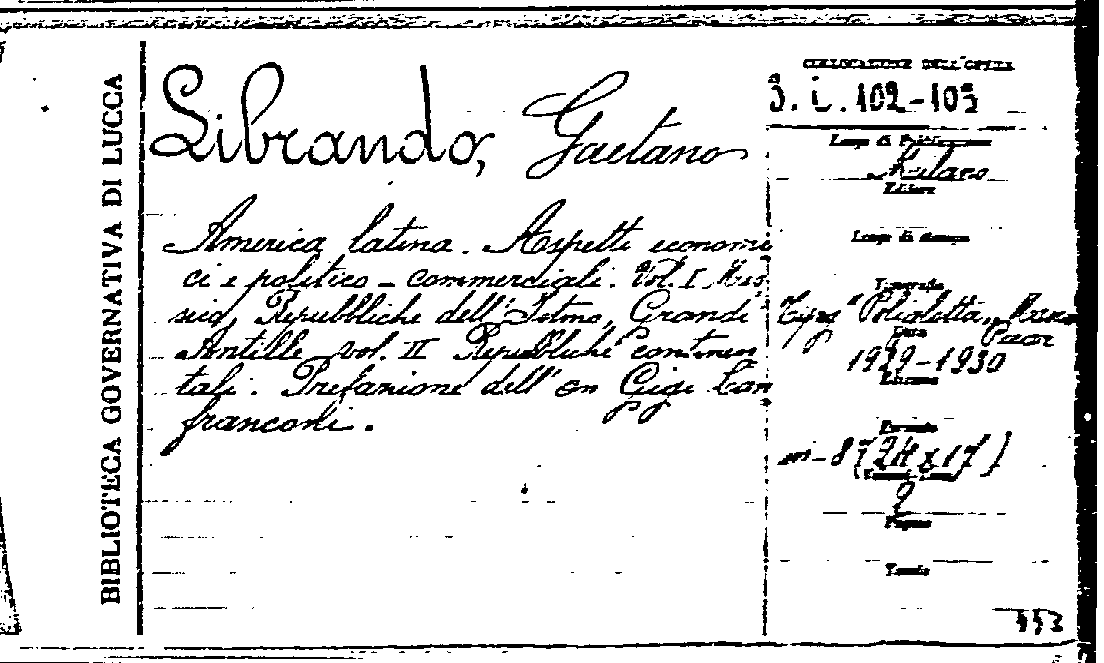 BIBLIOTECA GOVERNATIVA DI LUCCA
Librando, Gaetano
America latina. Aspetti economi
ci e politico - commerciali. Vol. I Mes
sico, Repubbliche dell'Istmo, Grandi
Antille vol. II Repubbliche continen
tali. Prefazione dell' on Gigi Lan
franconi.
COLLOCAZIONE DELL'OPERA
3. i. 102-103
Luogo di Pubblicazione
Milano
Editore
Luogo di stampa
Tipografia
Poliglotta,
Data
1929-1930
Edizione
Formato
in-8 (24 x 17)
2
Pagine
Tavole